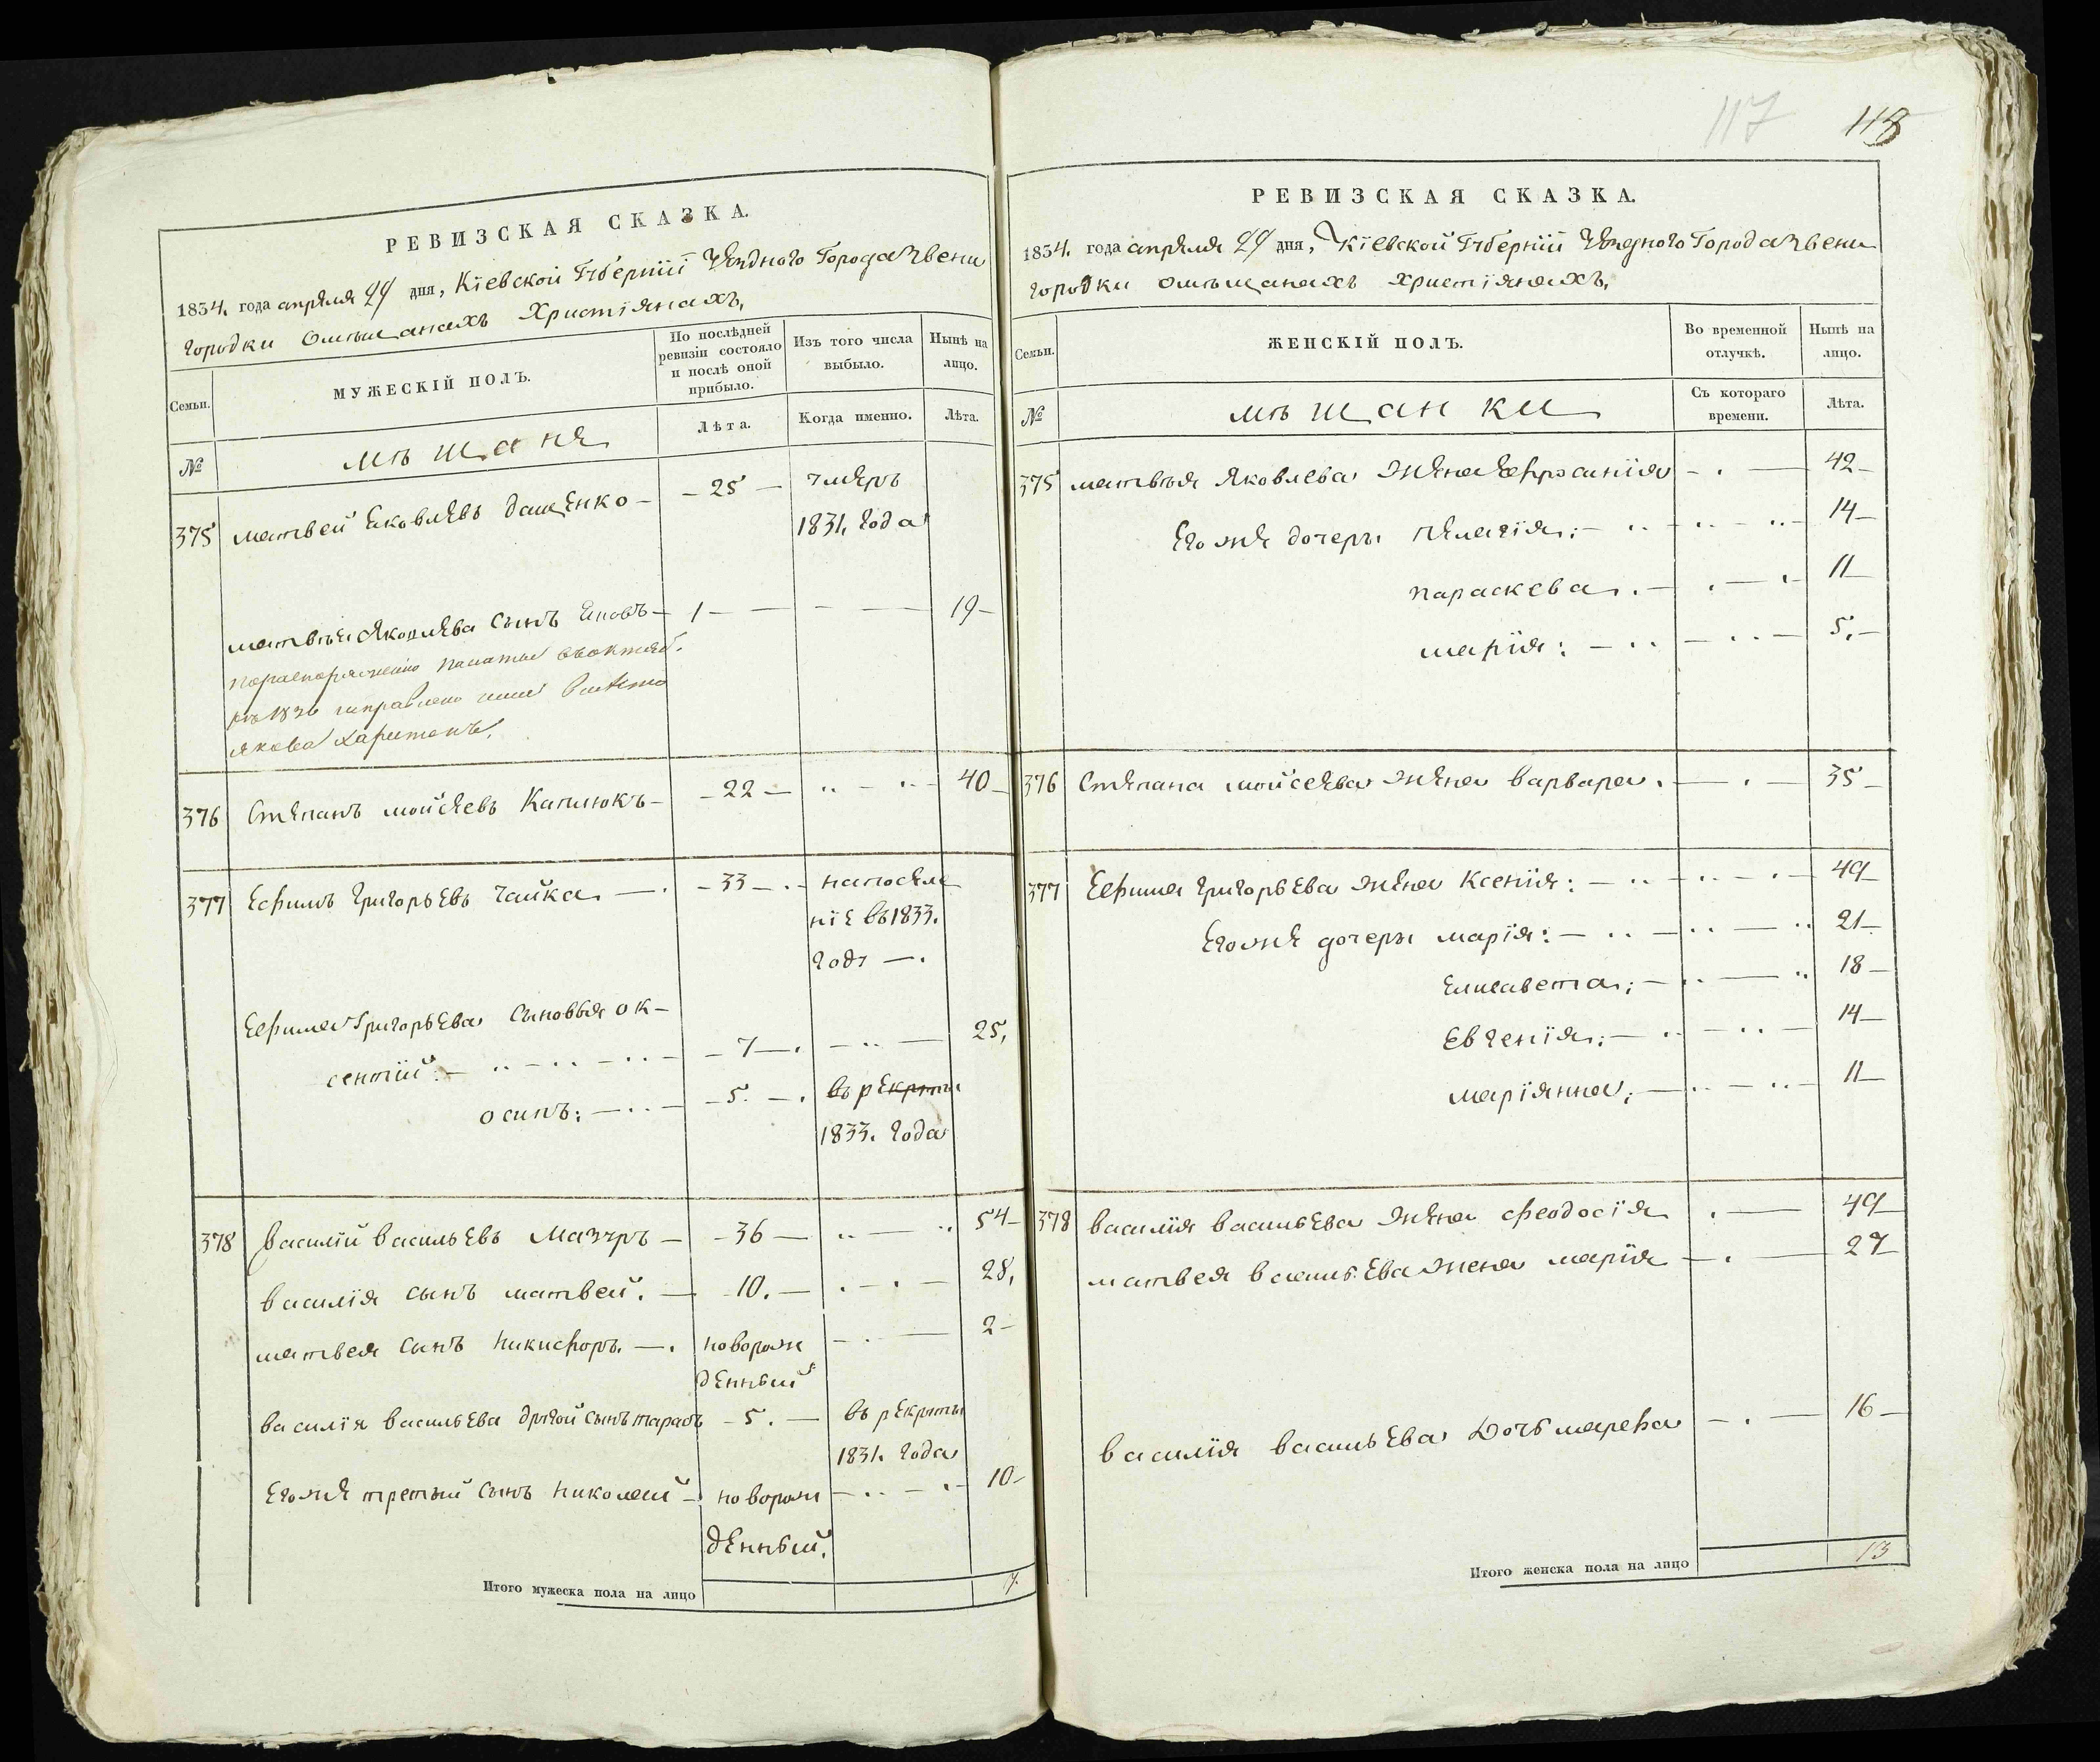 РЕВИЗСКАЯ СКАЗКА.
1834. года апреля 24 дня, Кіевской Губерніи Уезднаго Города Звени
городки омѣщанахъ Христіянахъ,
Семьи.
МУЖЕСКІЙ ПОЛЪ.
По послѣдней ревизіи состояло и послѣ оной прибыло.
Изъ того числа выбыло.
Нынѣ на лицо.
№
мѣщане
Лѣта.
Когда именно.
Лѣта.
375 матвей Яковлевъ дащенко — 25 — умеръ
1831, года
матвѣя Яковлева сынъ Яковъ — 1 — — — — 19 —
пораспоряжению палаты
1836 исправлено имя вместо
якова харитонъ,
376 Степанъ мойсеевъ Капинокъ — 22 — 40 —
377 Ефимъ григорьевъ чайка — 33 — . — напоселе
ніе въ1833.
году — .
Ефима григорьева сыновья ок-
сентій: — 7 — . — 25,
осипъ: — 5. — . въ рекруты
1833. года
378 василій васильевъ Мазуръ — 36 — 54 —
василія сынъ матвей. — 10. — 28,
матвея сынъ никифоръ. — . новорож — 2 —
денный
василія васильева другой сынъ тарасъ — 5. — въ рекруты
1831. года
Егоже третый сынъ николай — новорож — 10 —
денный,
Итого мужеска пола на лицо 7.
117 118
РЕВИЗСКАЯ СКАЗКА.
1834. года апреля 24 дня, Кіевской Губерніи Уезднаго Города Звени
городки омѣщанахъ христіянахъ,
Семьи.
ЖЕНСКІЙ ПОЛЪ.
Во временной отлучкѣ.
Нынѣ на лицо.
№
мѣщанки
Съ котораго времени.
Лѣта.
375 матвѣя Яковлева жена Ефросинія — . — 42 —
Егоже дочеры пелагія: — 14 —
параскева. — 11 —
марія: — 5. —
376 Степана мойсеева жена варвара. — . — 35 —
377 Ефима григорьева жена Ксенія: — 49 —
Егоже дочеры марія: — 21 —
Елисавета: — 18 —
Евгенія: — 14 —
маріянна: — 11 —
378 василія васильева жена феодосія . — 49 —
матвея васильева жена марія — . — 27
василія васильева Дочь марфа — . — 16 —
Итого женска пола на лицо 13